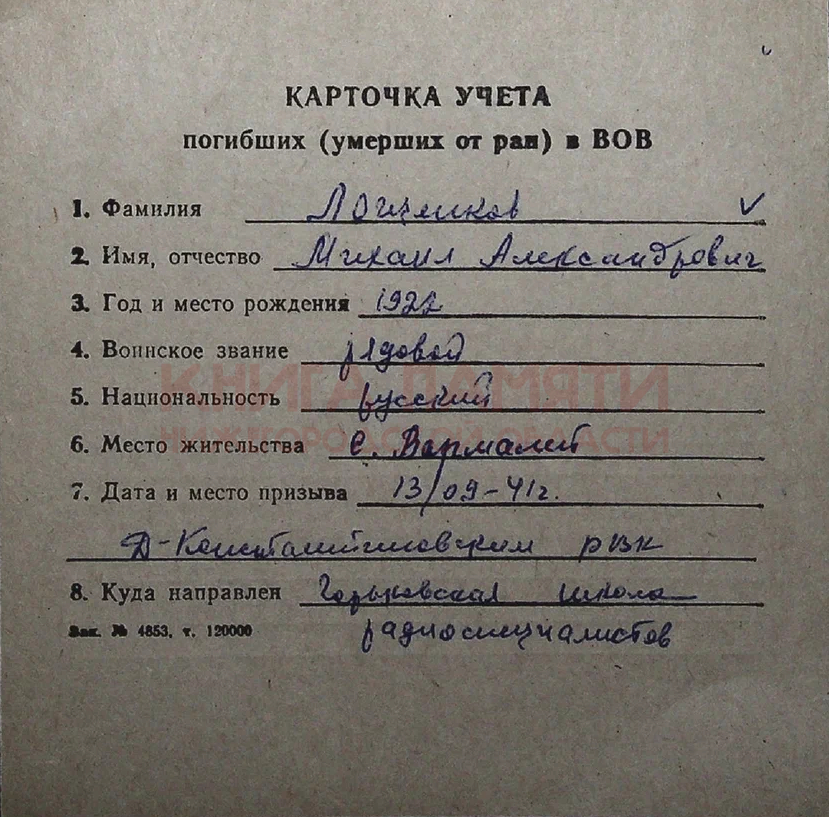 КАРТОЧКА УЧЕТА
погибших (умерших от ран) в ВОВ
1. Фамилия Лощилков
2. Имя, отчество Михаил Александрович
3. Год и место рождения 1922
4. Воинское звание рядовой
5. Национальность русский
КНИГА ПАМЯТИ
НИЖЕГОРОДСКОЙ ОБЛАСТИ
6. Место жительства с. Вармалей
7. Дата и место призыва 13/09-41г.
Д-Константиновским РВК
8. Куда направлен Горьковская школа
Зак. № 4853, т. 120000 радиоспециалистов